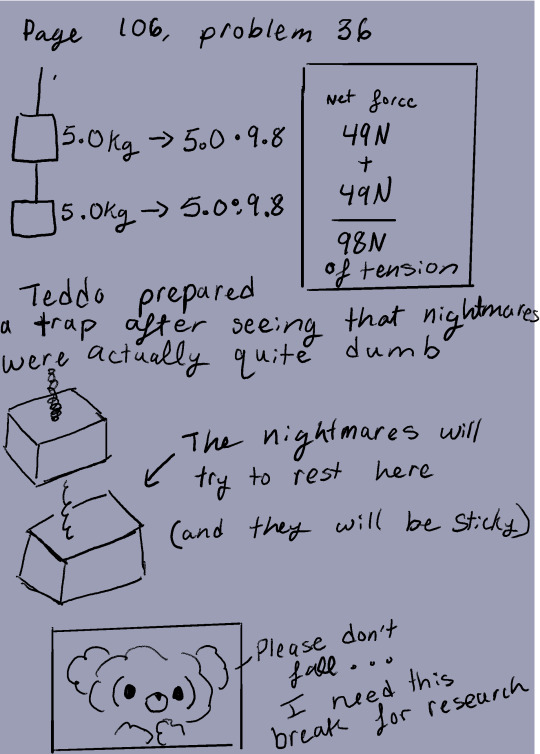 Page 106, problem 36
5.0kg → 5.0 · 9.8
5.0kg → 5.0 · 9.8
Net force
49N
+
49N
98N
of tension
Teddo prepared
a trap after seeing that nightmares
were actually quite dumb
The nightmares will
try to rest here
(and they will be sticky)
Please don't
fall...
I need this
break for research